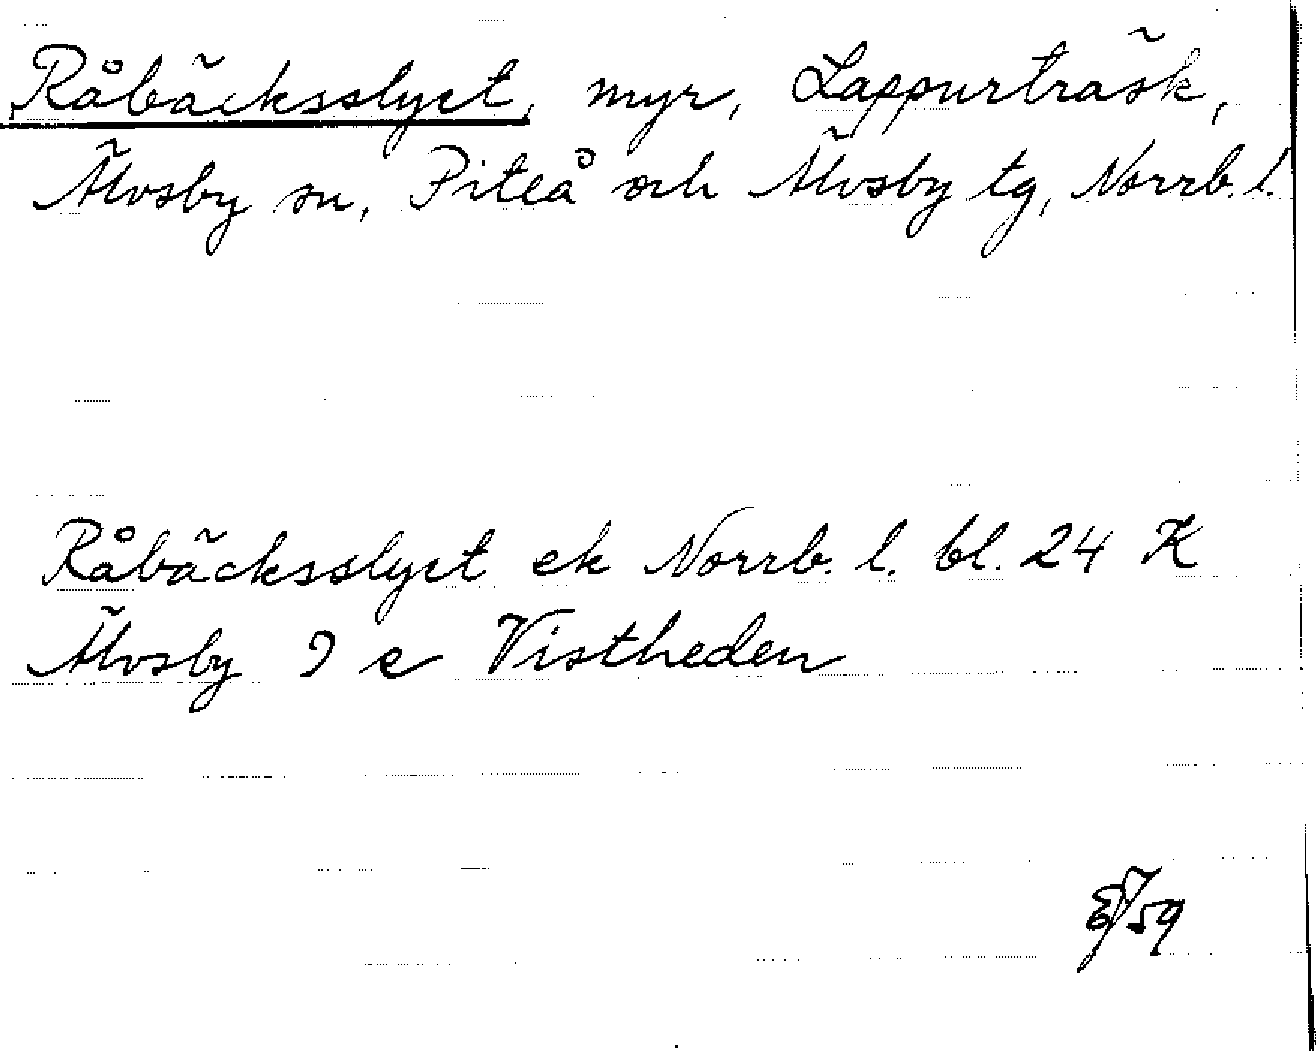 Råbäcksslyet, myr, Lappurträsk,
Älvsby sn, Piteå och Älvsby tg, Norrb. l.
Råbäcksslyet ek Norrb. l. bl. 24 K
Älvsby 9 e Vistheden
/59